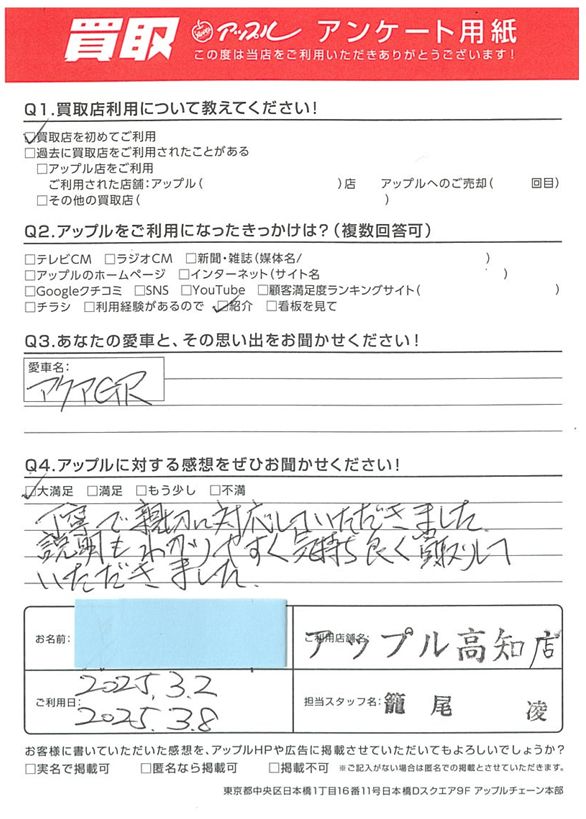 買取 アップル アンケート用紙
この度は当店をご利用いただきありがとうございます!
Q1.買取店利用について教えてください!
☑買取店を初めてご利用
□過去に買取店をご利用されたことがある
□アップル店をご利用
ご利用された店舗:アップル( )店 アップルへのご売却( 回目)
□その他の買取店( )
Q2.アップルをご利用になったきっかけは?(複数回答可)
□テレビCM □ラジオCM □新聞・雑誌(媒体名/ )
□アップルのホームページ □インターネット(サイト名 )
□Googleクチコミ □SNS □YouTube □顧客満足度ランキングサイト( )
□チラシ □利用経験があるので ☑紹介 □看板を見て
Q3.あなたの愛車と、その思い出をお聞かせください!
愛車名:
アクアGR
Q4.アップルに対する感想をぜひお聞かせください!
☑大満足 □満足 □もう少し □不満
丁寧で親切に対応していただきました。
説明もわかりやすく気持ち良く買取して
いただきました。
お名前: ご利用店舗名:アップル高知店
ご利用日: 2025.3.2
2025.3.8
担当スタッフ名: 籠尾 凌
お客様に書いていただいた感想を、アップルHPや広告に掲載させていただいてもよろしいでしょうか?
□実名で掲載可 □匿名なら掲載可 □掲載不可 ※ご記入がない場合は匿名での掲載とさせていただきます。
東京都中央区日本橋1丁目16番11号日本橋Dスクエア9F アップルチェーン本部